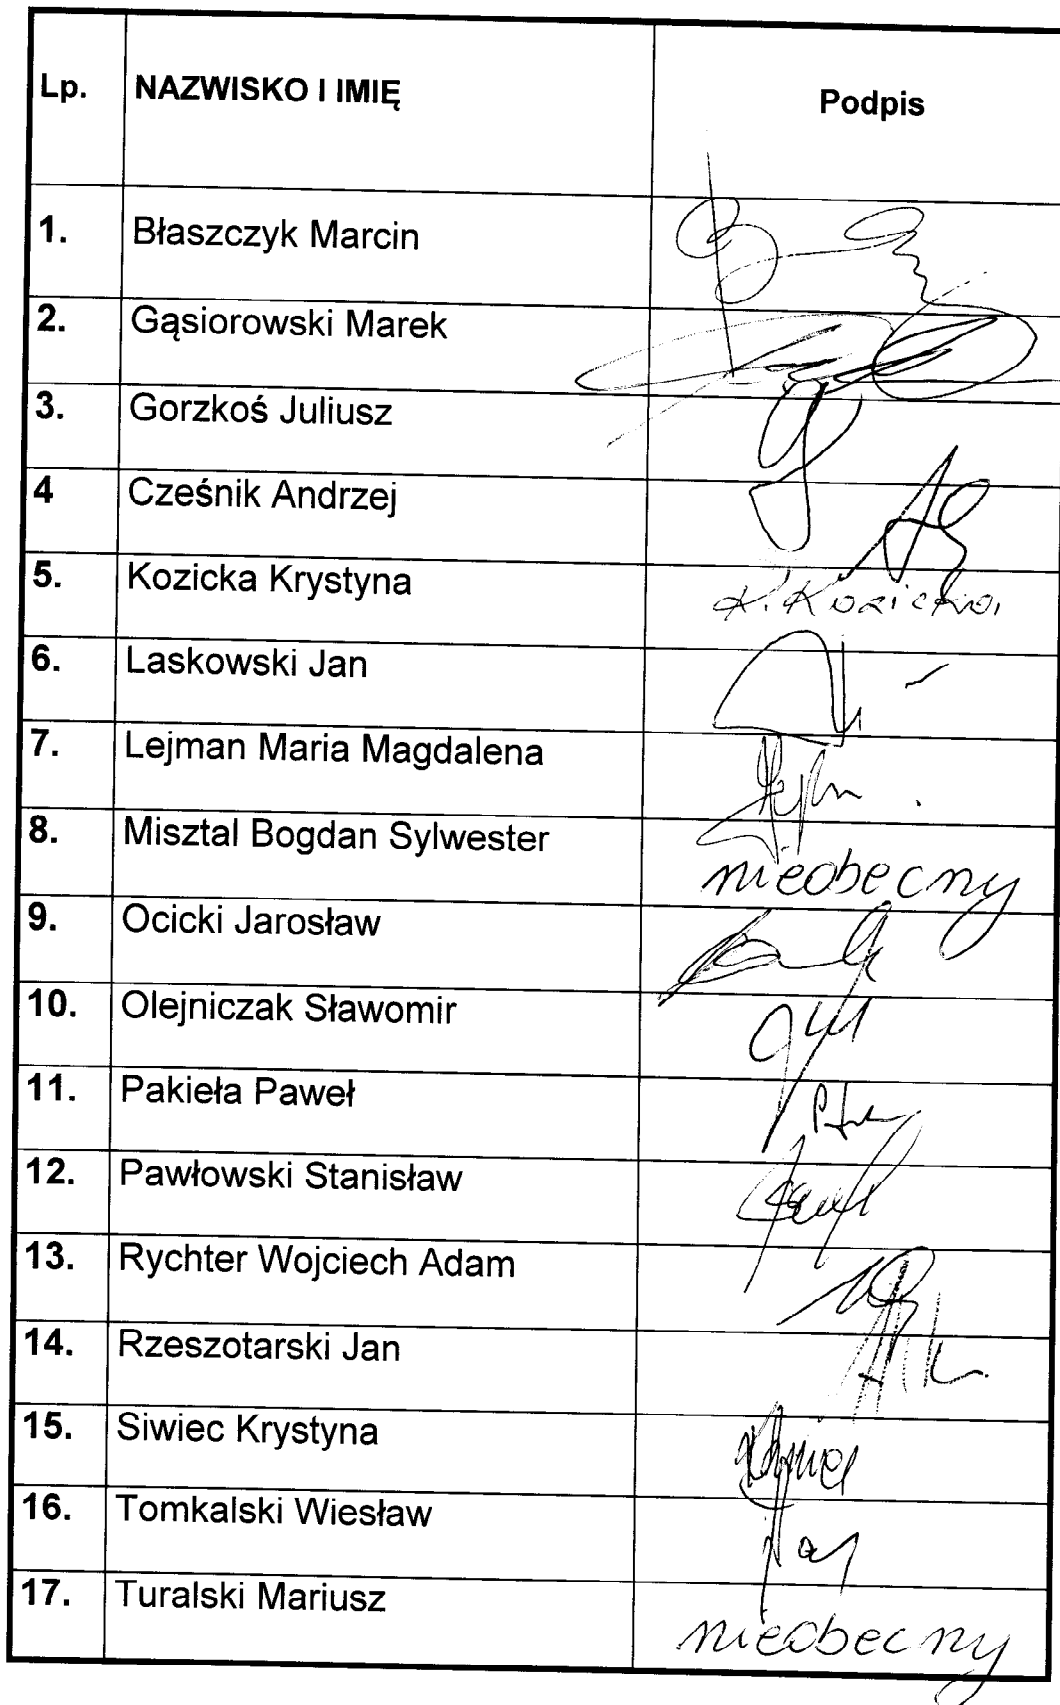 Lp. NAZWISKO I IMIĘ Podpis
1. Błaszczyk Marcin
2. Gąsiorowski Marek
3. Gorzkoś Juliusz
4 Cześnik Andrzej
5. Kozicka Krystyna K. Kozicka
6. Laskowski Jan
7. Lejman Maria Magdalena
8. Misztal Bogdan Sylwester nieobecny
9. Ocicki Jarosław
10. Olejniczak Sławomir
11. Pakieła Paweł
12. Pawłowski Stanisław
13. Rychter Wojciech Adam
14. Rzeszotarski Jan
15. Siwiec Krystyna
16. Tomkalski Wiesław
17. Turalski Mariusz nieobecny